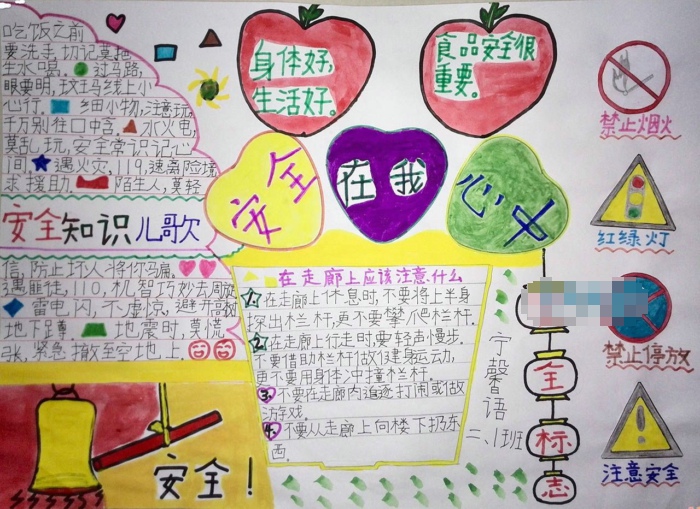 吃饭之前
要洗手,切记莫把
生水喝。过马路,
眼要明,斑马线上小
心行。细小物,注意玩,
千万别往口中含。水火电,
莫乱玩,安全常识记心
间。遇火灾,119,速离险境
求援助。陌生人,莫轻
安全知识儿歌
信,防止坏人将你骗。
遇匪徒,110,机智巧妙去周旋
雷电闪,不虚惊,避开高树
地下蹲。地震时,莫慌
张,紧急撤至空地上。
安全!
身体好,
生活好。
食品安全很
重要。
安全在我心中
在走廊上应该注意什么
1.在走廊上休息时,不要将上半身
探出栏杆,更不要攀爬栏杆.
2.在走廊上行走时,要轻声慢步.
不要借助栏杆做健身运动,
更不要用身体冲撞栏杆.
3.不要在走廊内追逐打闹或做
游戏.
4.不要从走廊上向楼下扔东
西.
宁馨语
二、1班
全标志
禁止烟火
红绿灯
禁止停放
注意安全